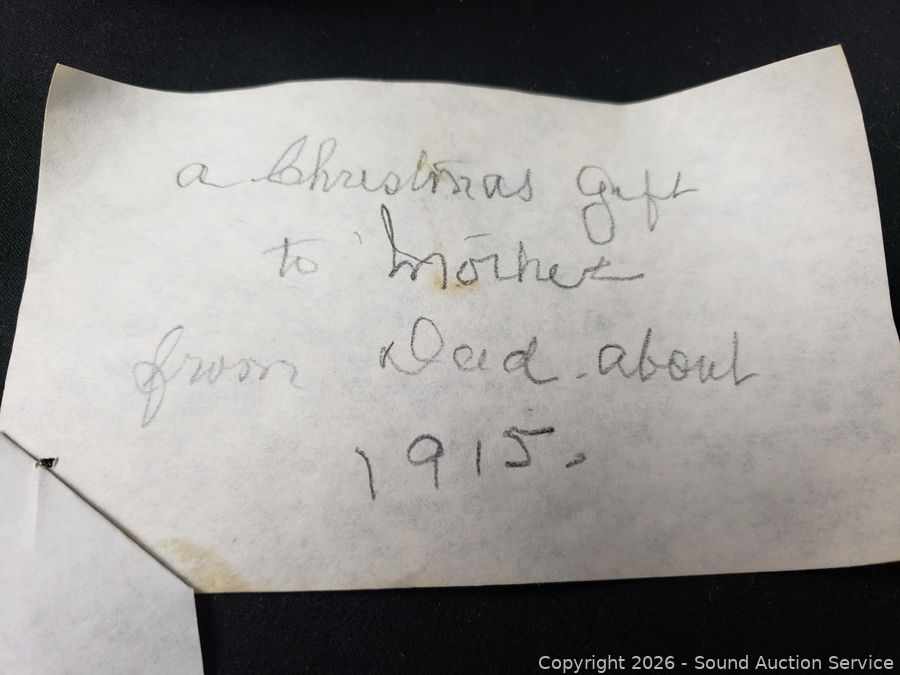 a Christmas gift
to Mother
from Dad about
1915.
Copyright 2026 - Sound Auction Service